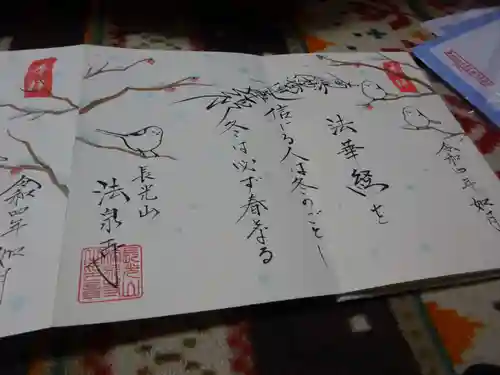 令和四年 如月
法華経を
信じる人は冬のごとし
冬は必ず春となる
長光山
法泉寺
令和四年 如月